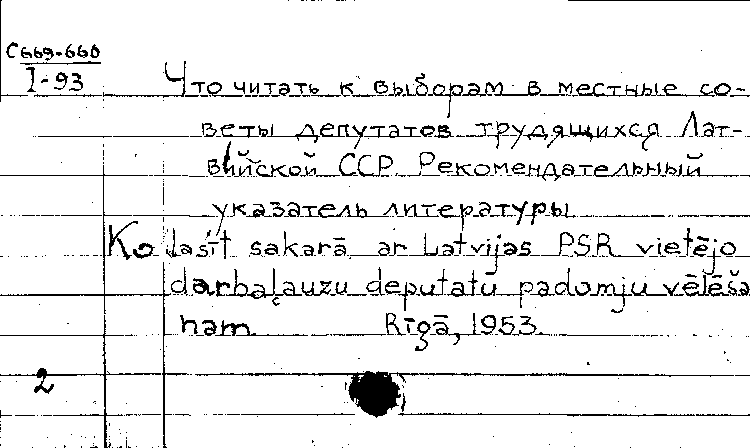 С669-660
I-93
Что читать к выборам в местные со-
веты депутатов трудящихся Лат-
вийской ССР. Рекомендательный
указатель литературы.
Ko lasīt sakarā ar Latvijas PSR vietējo
darbaļauzu deputatū padomju vēlēša
nam. Rīgā, 1953.
2